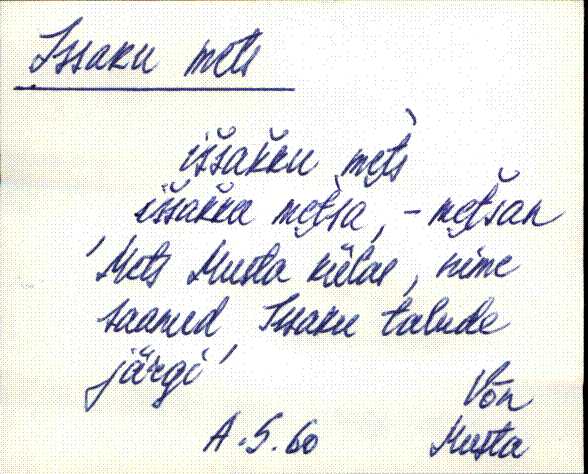 Issaku mets
iššakku mets̀
iššakku metsa, - metšan
'Mets Musta külas, nime
saanud Issaku talude
järgi'
Võn
A.S. 60 Musta